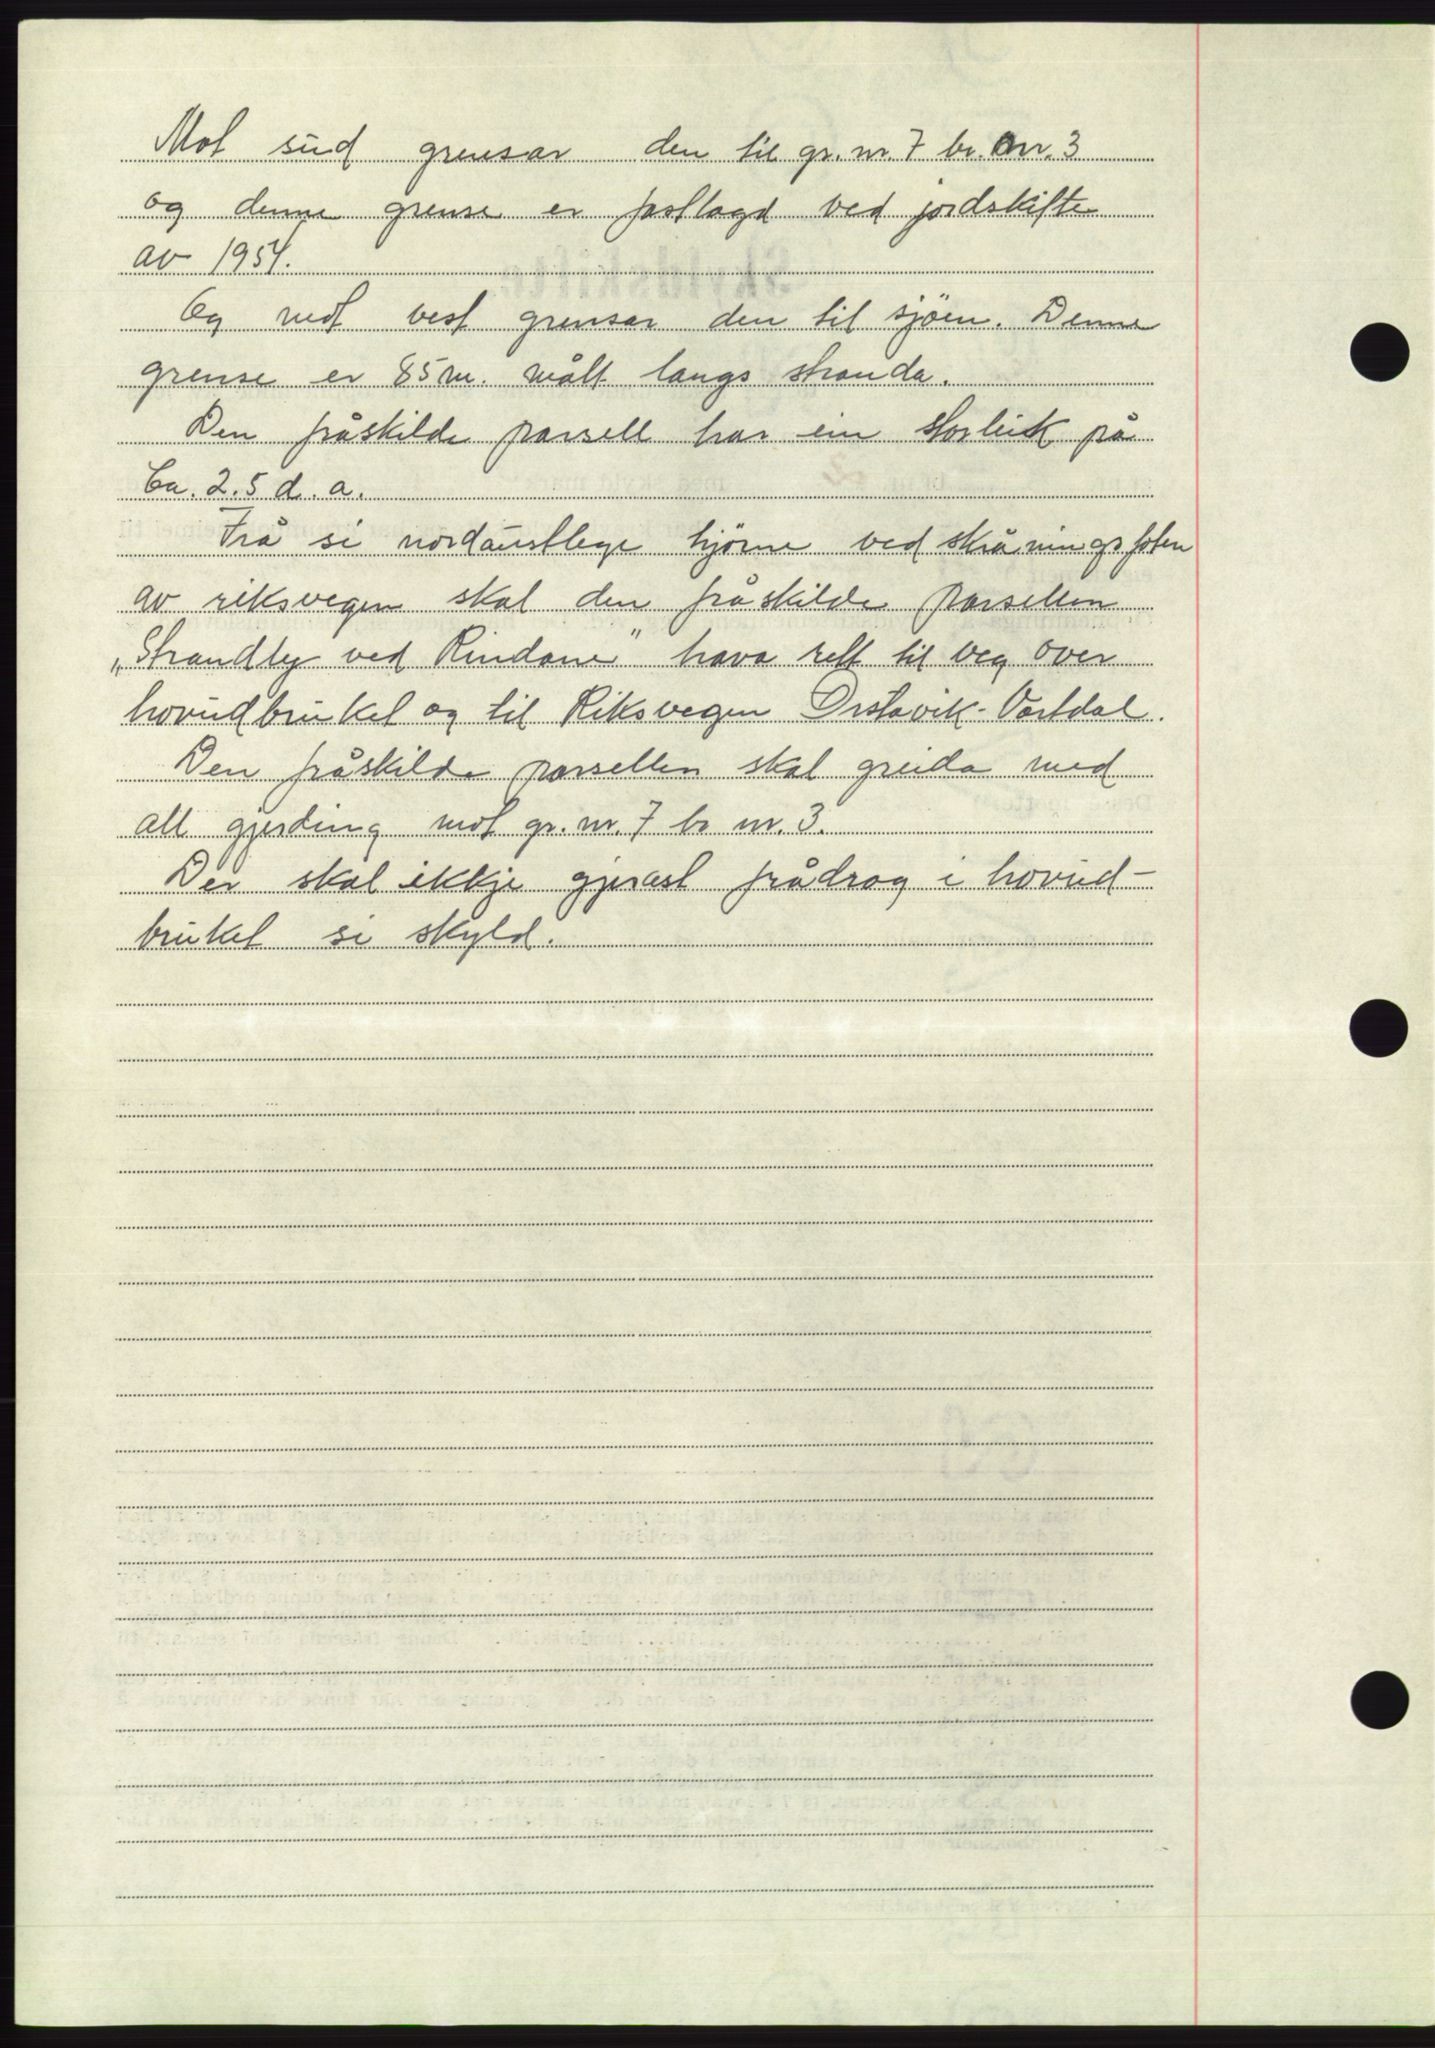 Mot sud grensar den til gr. nr. 7 br. nr. 3
og denne grense er fastlagd ved jordskifte
av 1954.
Og mot vest grensar den til sjöen. Denne
grense er 85 m. målt langs stranda.
Den fråskilde parsell har ein storleik på
Ca. 2.5 d. a.
Frå si nordaustlege hjörne ved skråningsfoten
av riksvegen skal den fråskilde parsellen
„Strandly ved Rindane" hava rett til veg over
hovudbruket og til Riksvegen Örstavik-Vartdal.
Den fråskilde parsellen skal greida med
all gjerding mot gr. nr. 7 br nr. 3.
Der skal ikkje gjerast frådrag i hovud-
bruket si skyld.